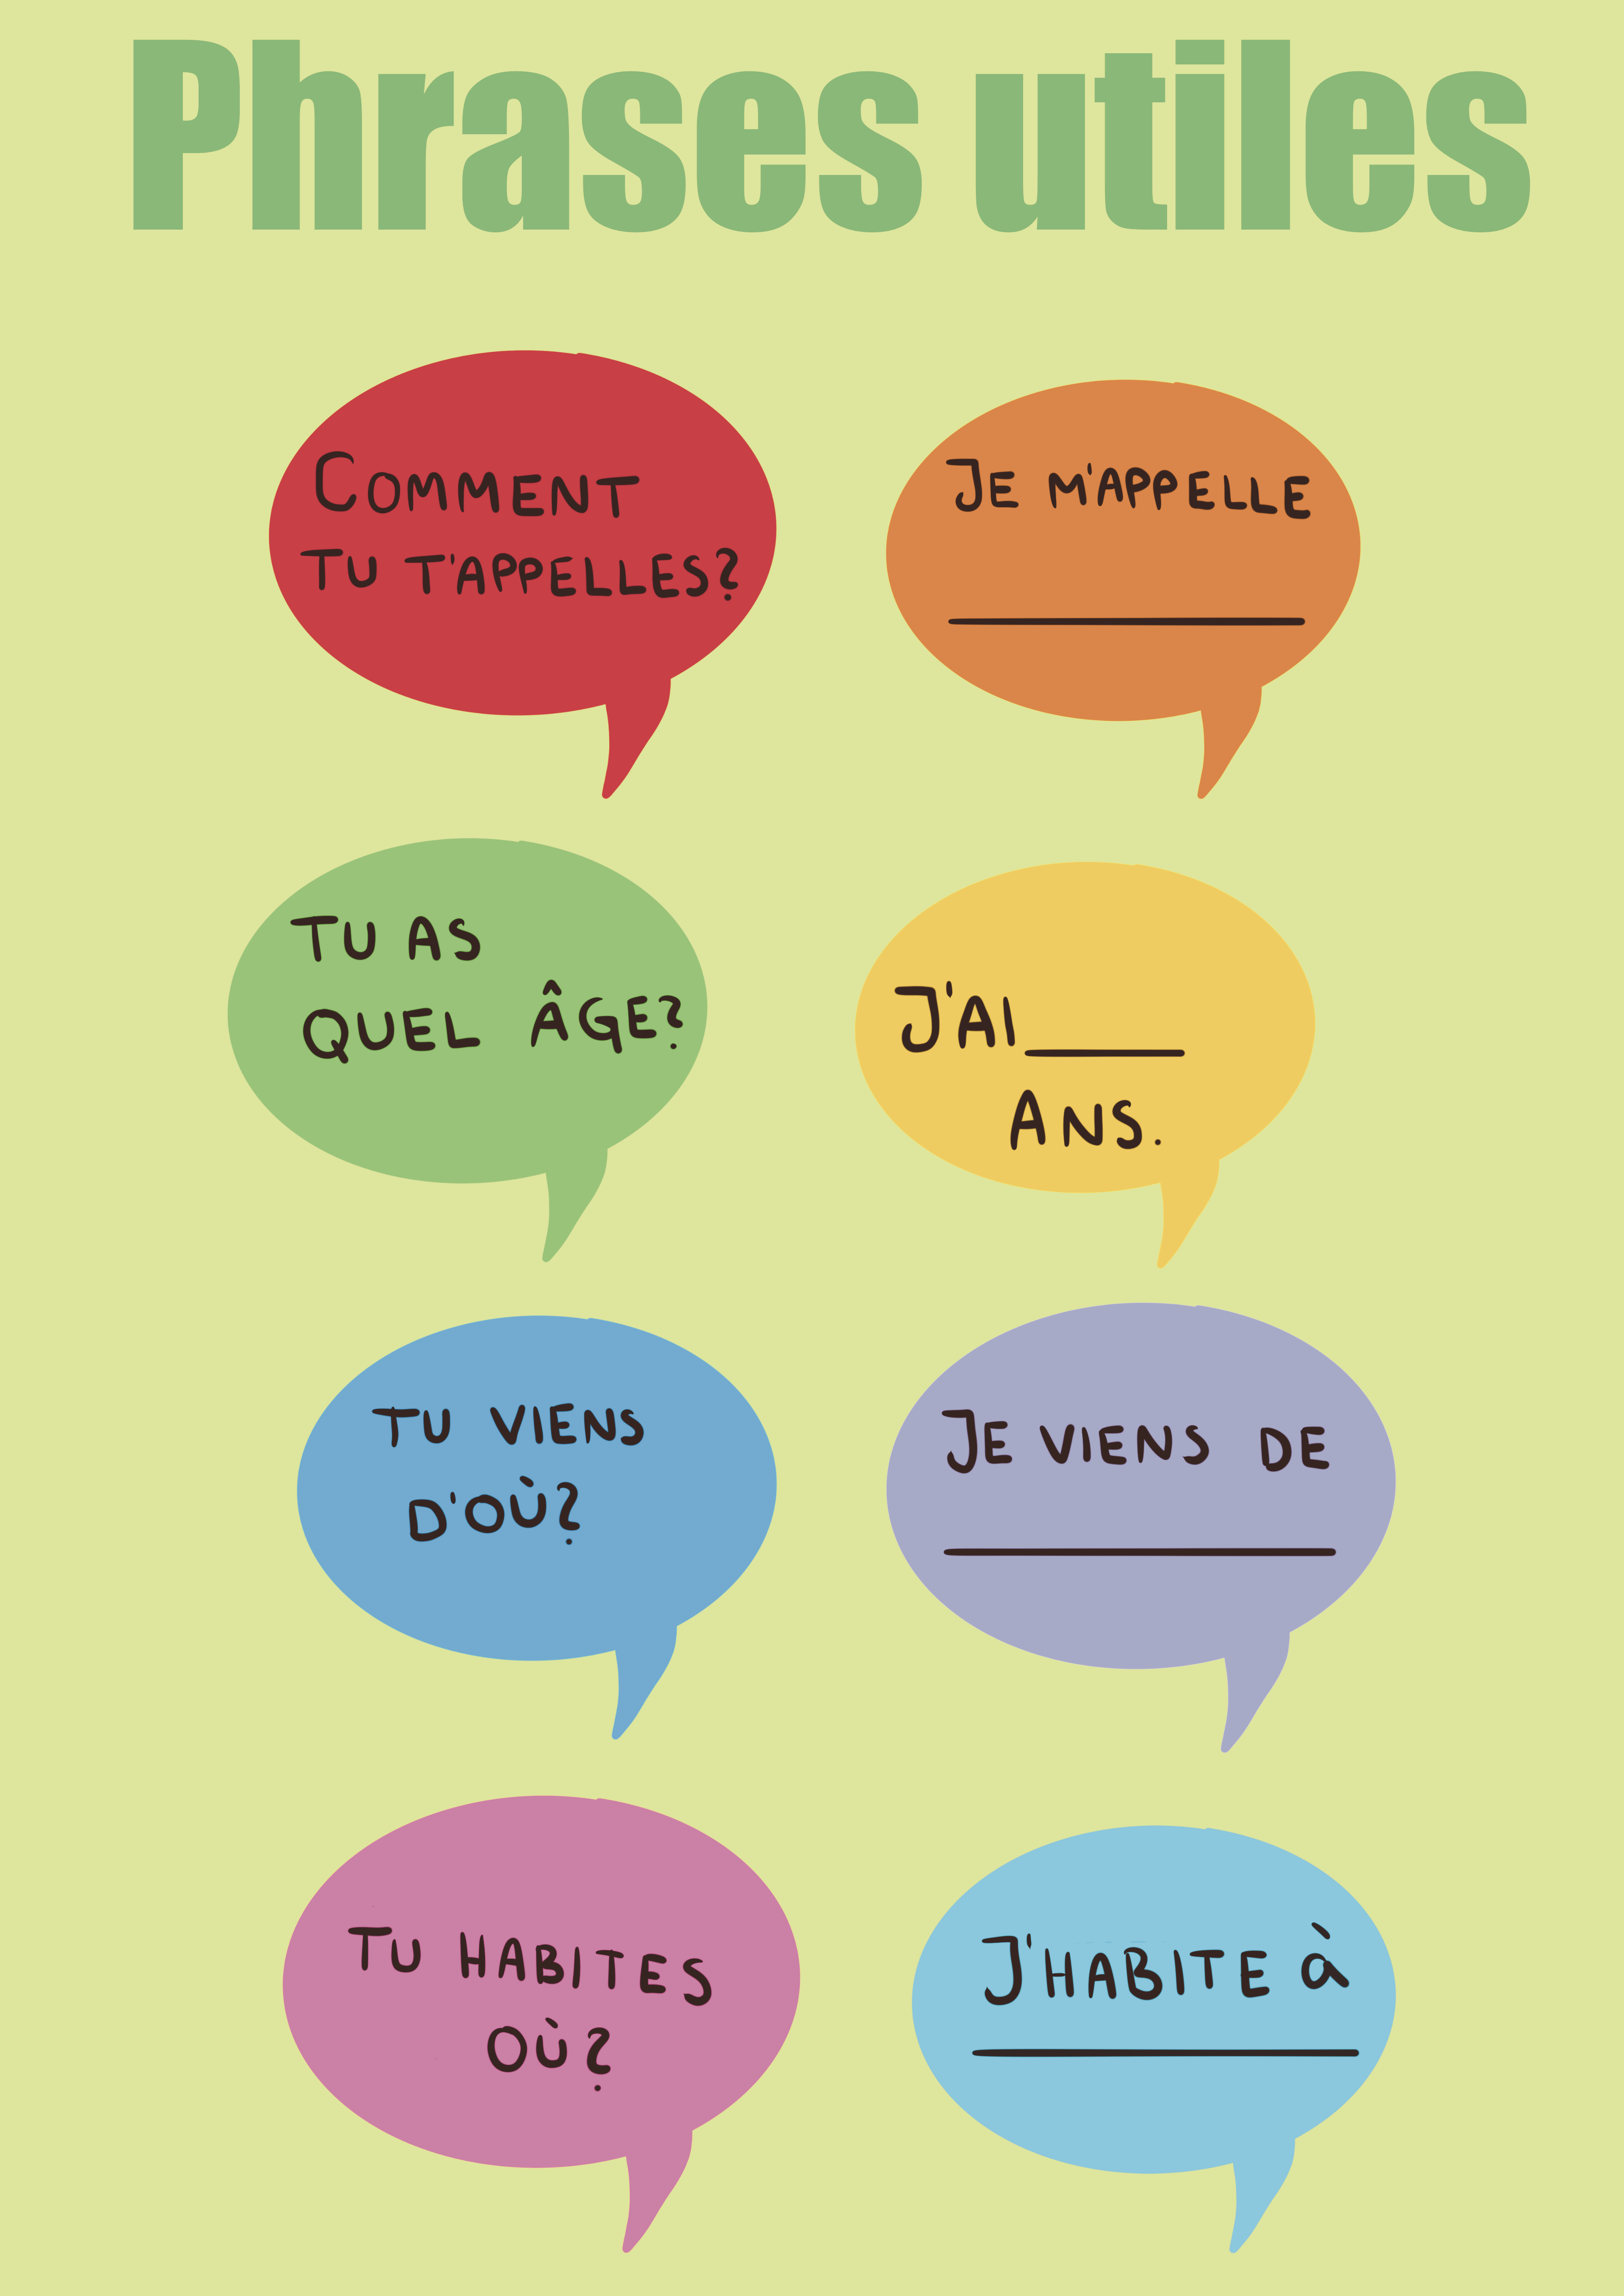 Phrases utiles
COMMENT
TU T'APPELLES?
JE M'APPELLE
TU AS
QUEL ÂGE?
J'AI
ANS.
TU VIENS
D'OÙ?
JE VIENS DE
TU HABITES
OÙ?
J'HABITE À